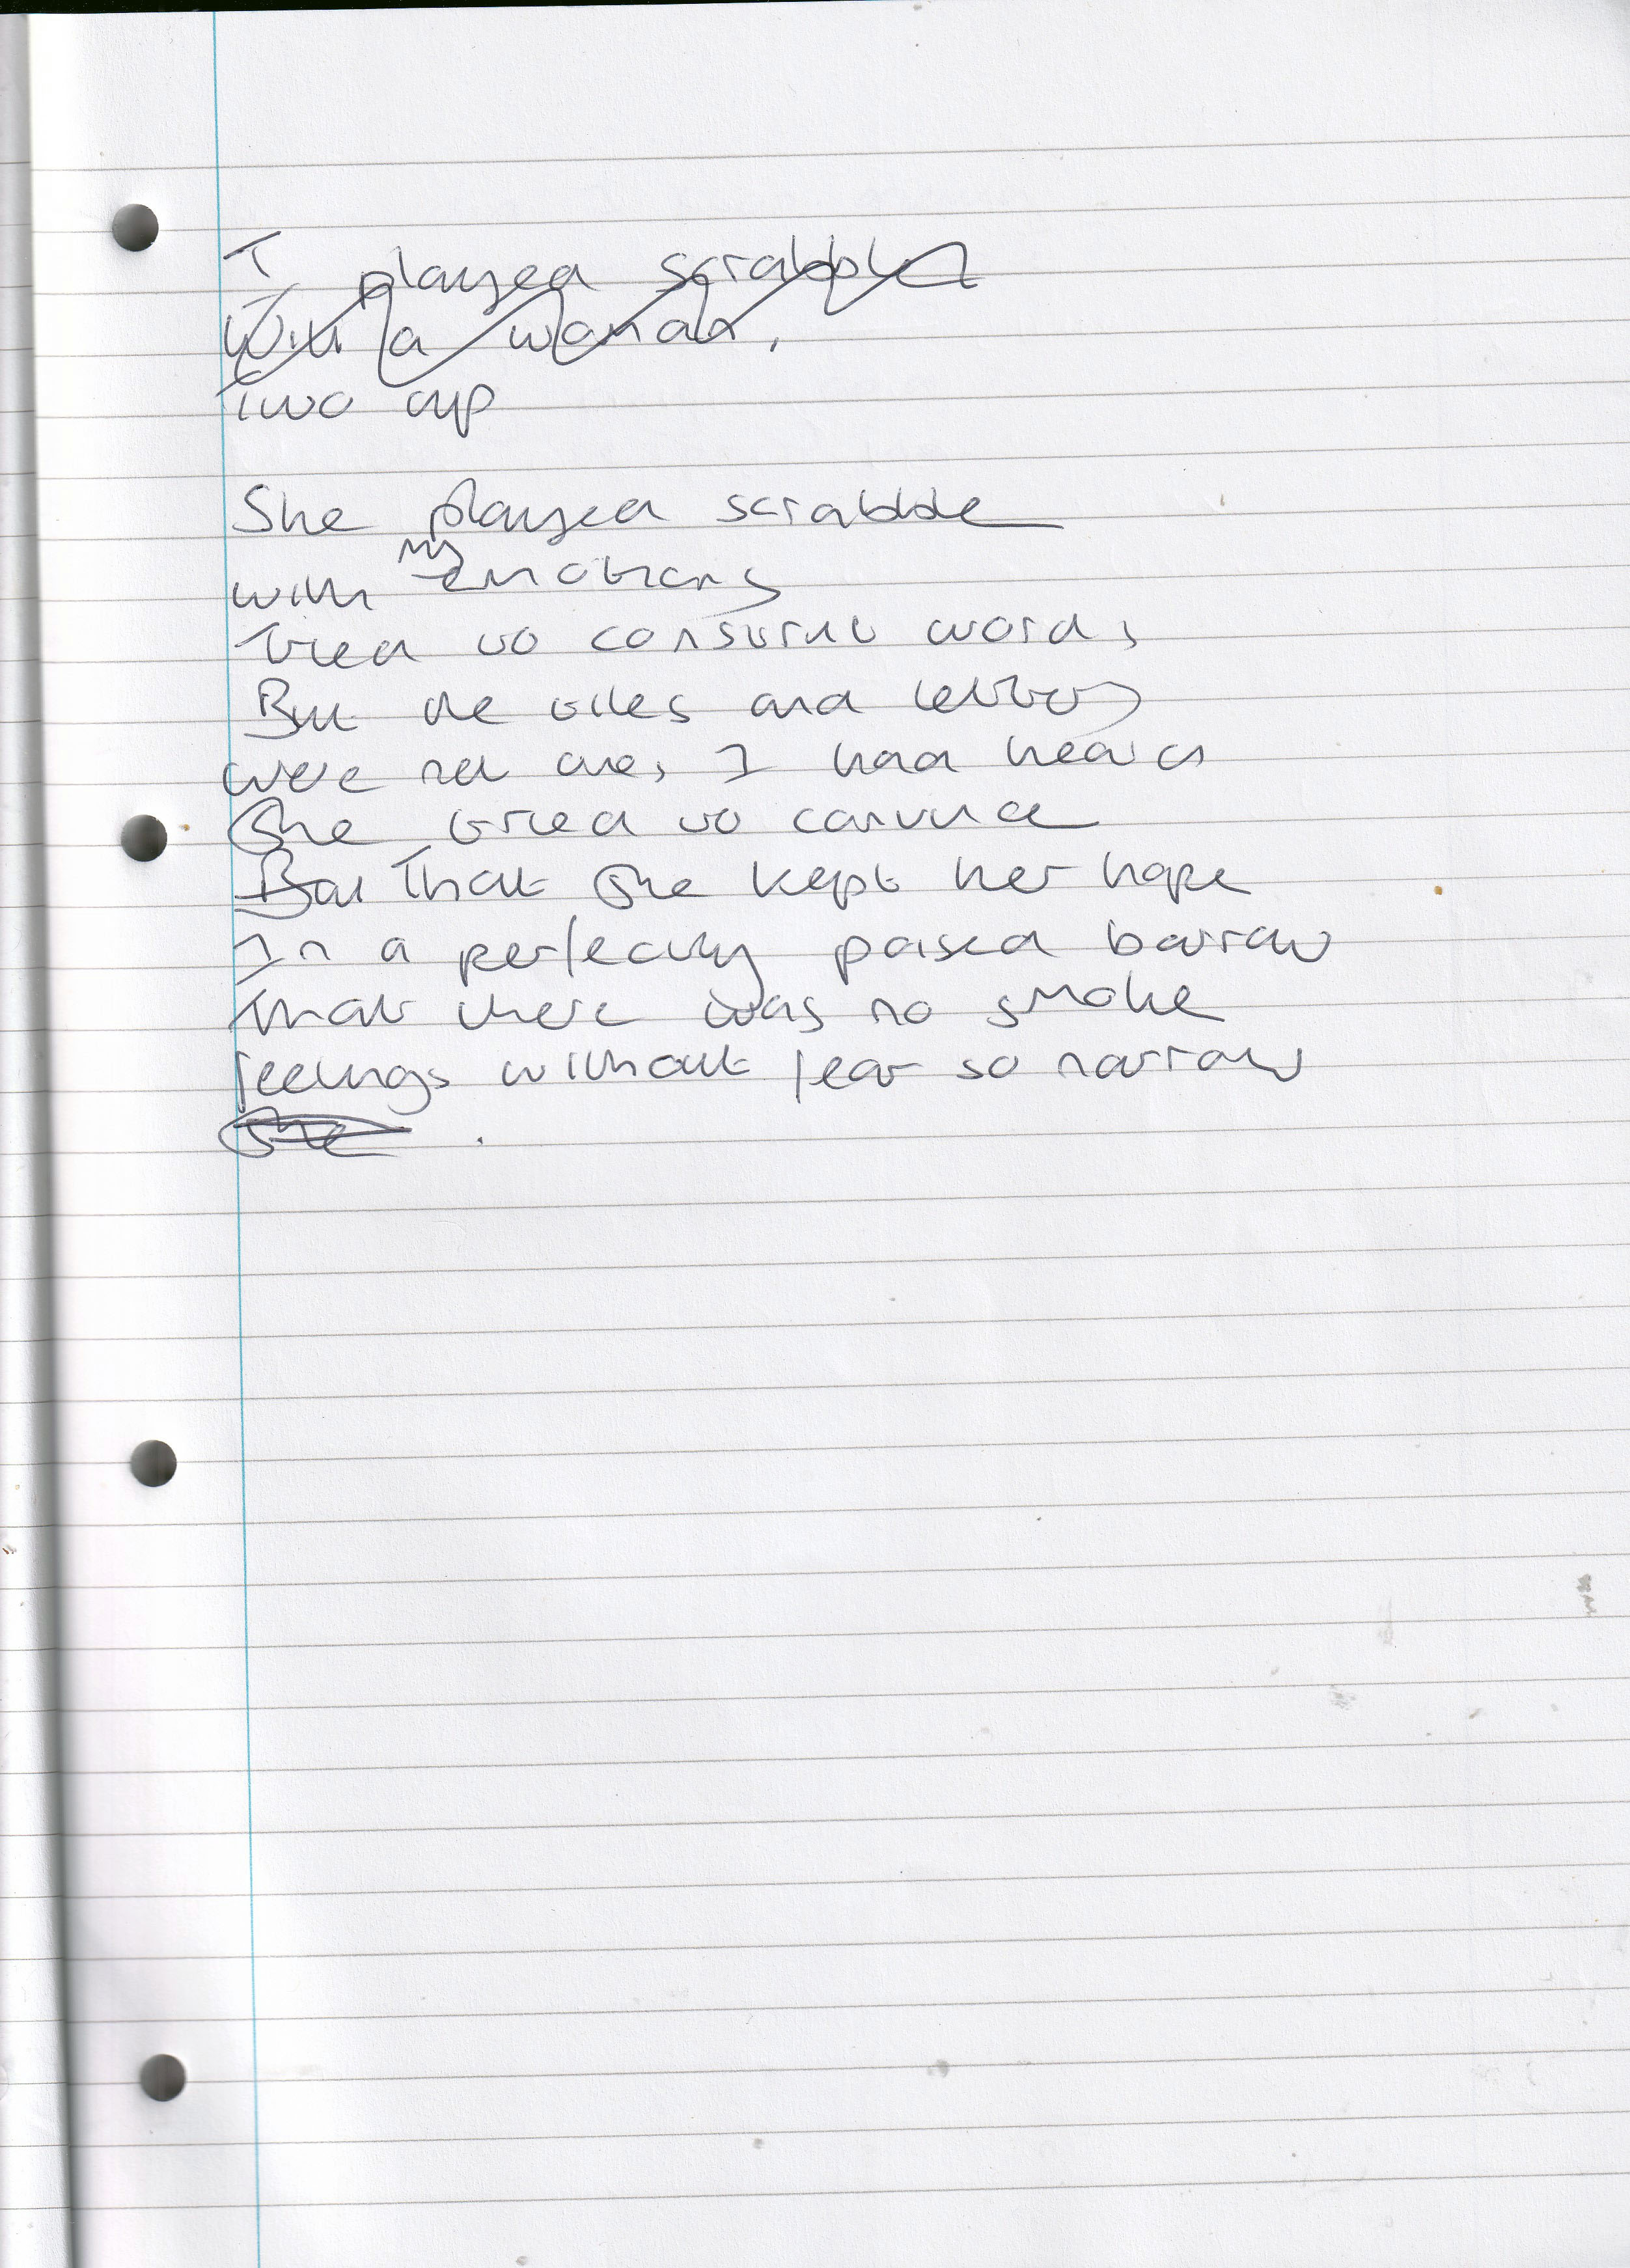 I played scrabble
With a woman,
Two cup
She played scrabble
with my emotions
Tried to construct words
But the tiles and letters
were not ones I had heard
She tried to convince
But That she kept her hope
In a perfectly poised barrow
That there was no smoke
feelings without fear so narrow
She